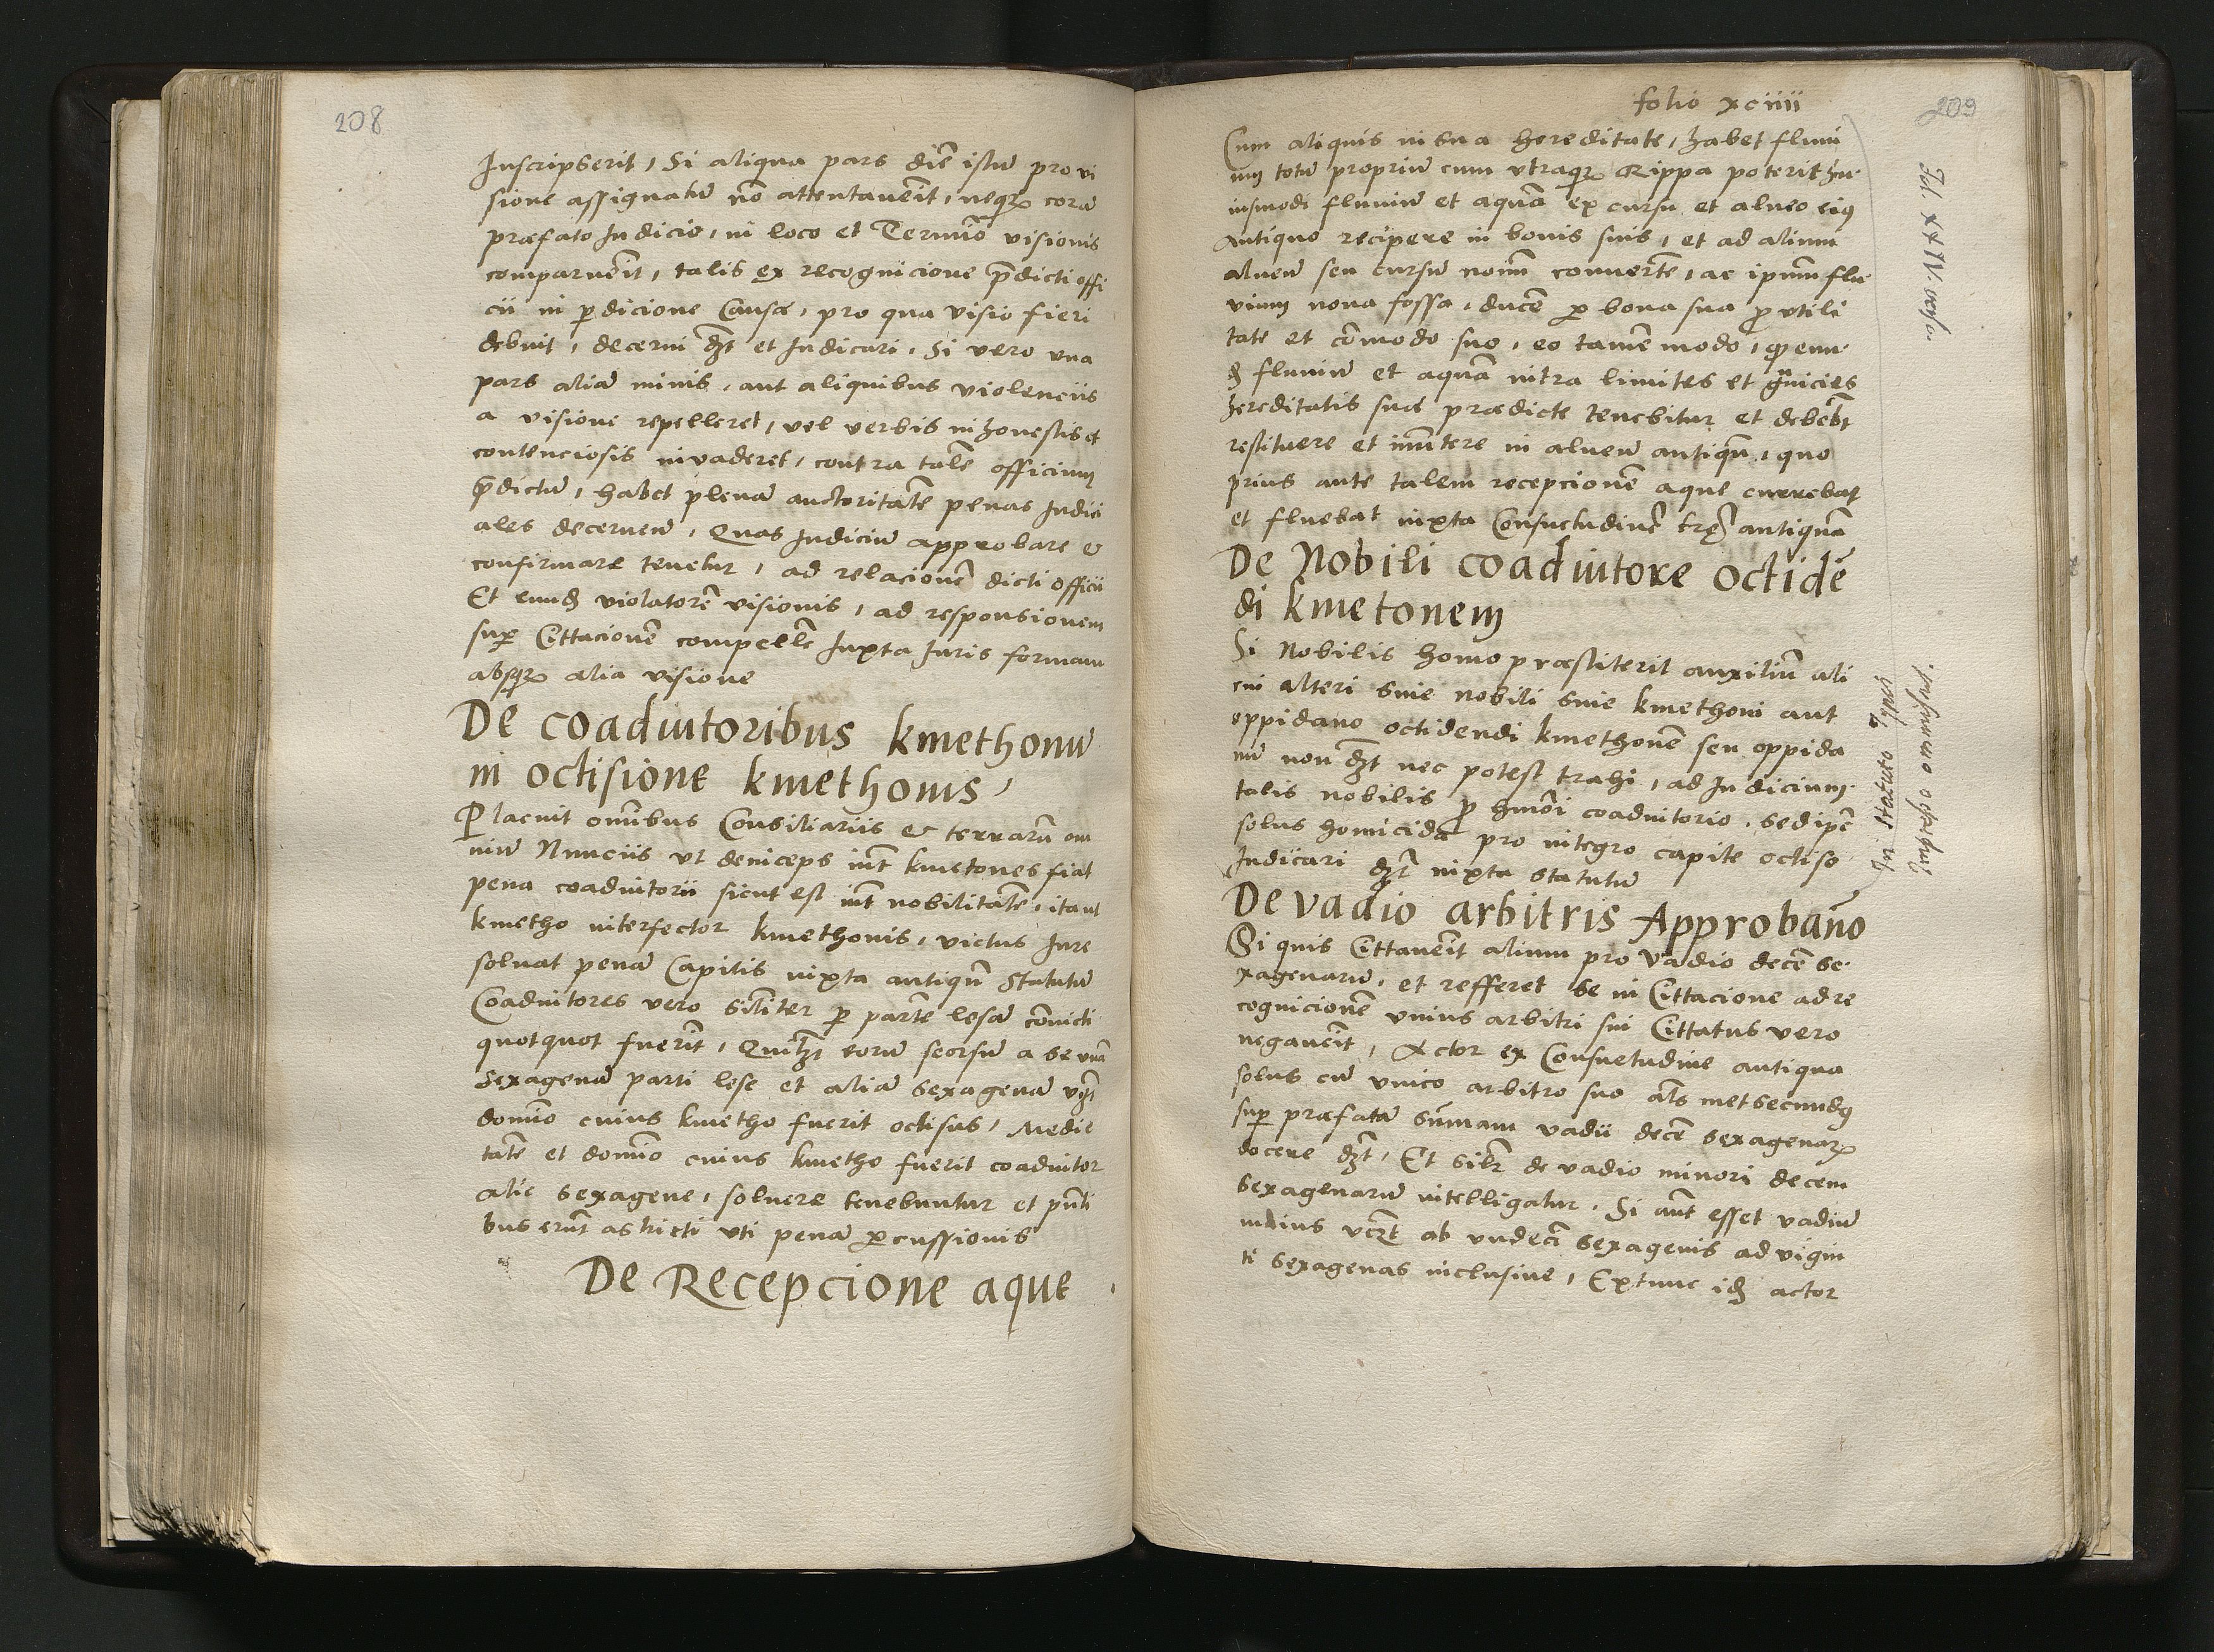 208
Inscripserit, Si aliqua pars diē istū pro vi
sione assignatū nō attentauerīt, neqȝ corā
præfato Iudicio, in loco et Termīo visionis
comparuerīt, talis ex recognicione p̄dicti offi
cii in ꝑdicione Causæ, pro qua visio fieri
debuit, decerni dȝt et Iudicari. Si vero vna
pars aliā minis, aut aliquibus violenciis
a visione repelleret, vel verbis inhonestis et
contenciosis invaderet, contra talē officium
p̄dictū, habet plenā auctoritatē penas Iudici
ales decernen̄, Quas Iudiciū approbare &
confirmare tenetur, ad relacionē dicti officii
Et eundȝ violatorē visionis, ad responsionem
suꝑ Cittacionē compellē Iuxta Iuris formam
absqȝ alia visione
De coadiutoribus kmethonū
in octisione kmethonis,
Placuit om̄ibus Consiliariis & terrarū om
niū Nunciis vt deniceps int̄ kmetones fiat
pena coadiutorii sicut est int̄ nobilitatē, ita ut
kmetho interfector kmethonis, victus Iure
soluat penā Capitis iuxta antiquū Statutū
Coadiutores vero sil̄iter ꝑ partē lesā cōuicti
quotquot fuerīt, Quil̄ȝt eorū seorsū a se vnā
sexagenā parti lese et aliā sexagenā vȝt
domīo cuius kmetho fuerit octisus, Medie
tatē et domīo cuius kmetho fuerit coadiutor
alie sexagene, soluere tenebuntur et pn̄ti
bus erūt astricti vti penā ꝑcussionis
De Recepcione aque
folio xciiii
209
Cum aliquis in sua hereditate, habet fluui
um totū propriū cum vtraqȝ Rippa poterit hu
iusmodi fluuiū et aquā ex cursu et alueo eiꝯ
antiquo recipere in bonis suis, et ad alium
alueū seu cursū nouū conuertē, ac ipm̄ flu
vium noua fossa, ducē ꝑ bona sua ꝓ vtili
tate et cōmodo suo, eo tamē modo, ꝙ eun
dȝ fluuiū et aquā intra limites et gn̄icies
hereditatis suæ prædicte tenebitur et debebt̄
restituere et im̄ittere in alueū antiquū, quo
prius ante talem recepcionē aque currebat
et fluebat iuxta Consuetudinē tr̄ȩ antiquā
De Nobili coadiutore octidē
di kmetonem
Si Nobilis homo præstiterit auxiliū ali
cui alteri siue nobili siue kmethoni aut
oppidano octidendi kmethonē seu oppida
nū non dȝt nec potest trahi, ad Iudicium
talis nobilis ꝓ hmōi coadiutorio, sed ipē
solus homicida pro integro capite octiso
Iudicari dȝt iuxta statutū
De vadio arbitris Approbāno
Si quis Cittauerīt alium pro vadio decē se
xagenarū, et refferet se in Cittacione ad re
cognicionē vnius arbitri sui Cittatus vero
negauerīt, Actor ex Consuetudine antiqua
solus cū vnico arbitro suo al̄s met secundꝯ
suꝑ præfatā sūmam vadii decē sexagenarȝ
docere dȝt, Et sil̄r de vadio minori decem
sexagenarū intelligatur. Si aūt esset vadiū
maius vcȝt ab vndecī sexagenis ad vigin
ti sexagenas inclusiue, Extunc idȝ actor
Fol. XXIV. verso.
In statuto